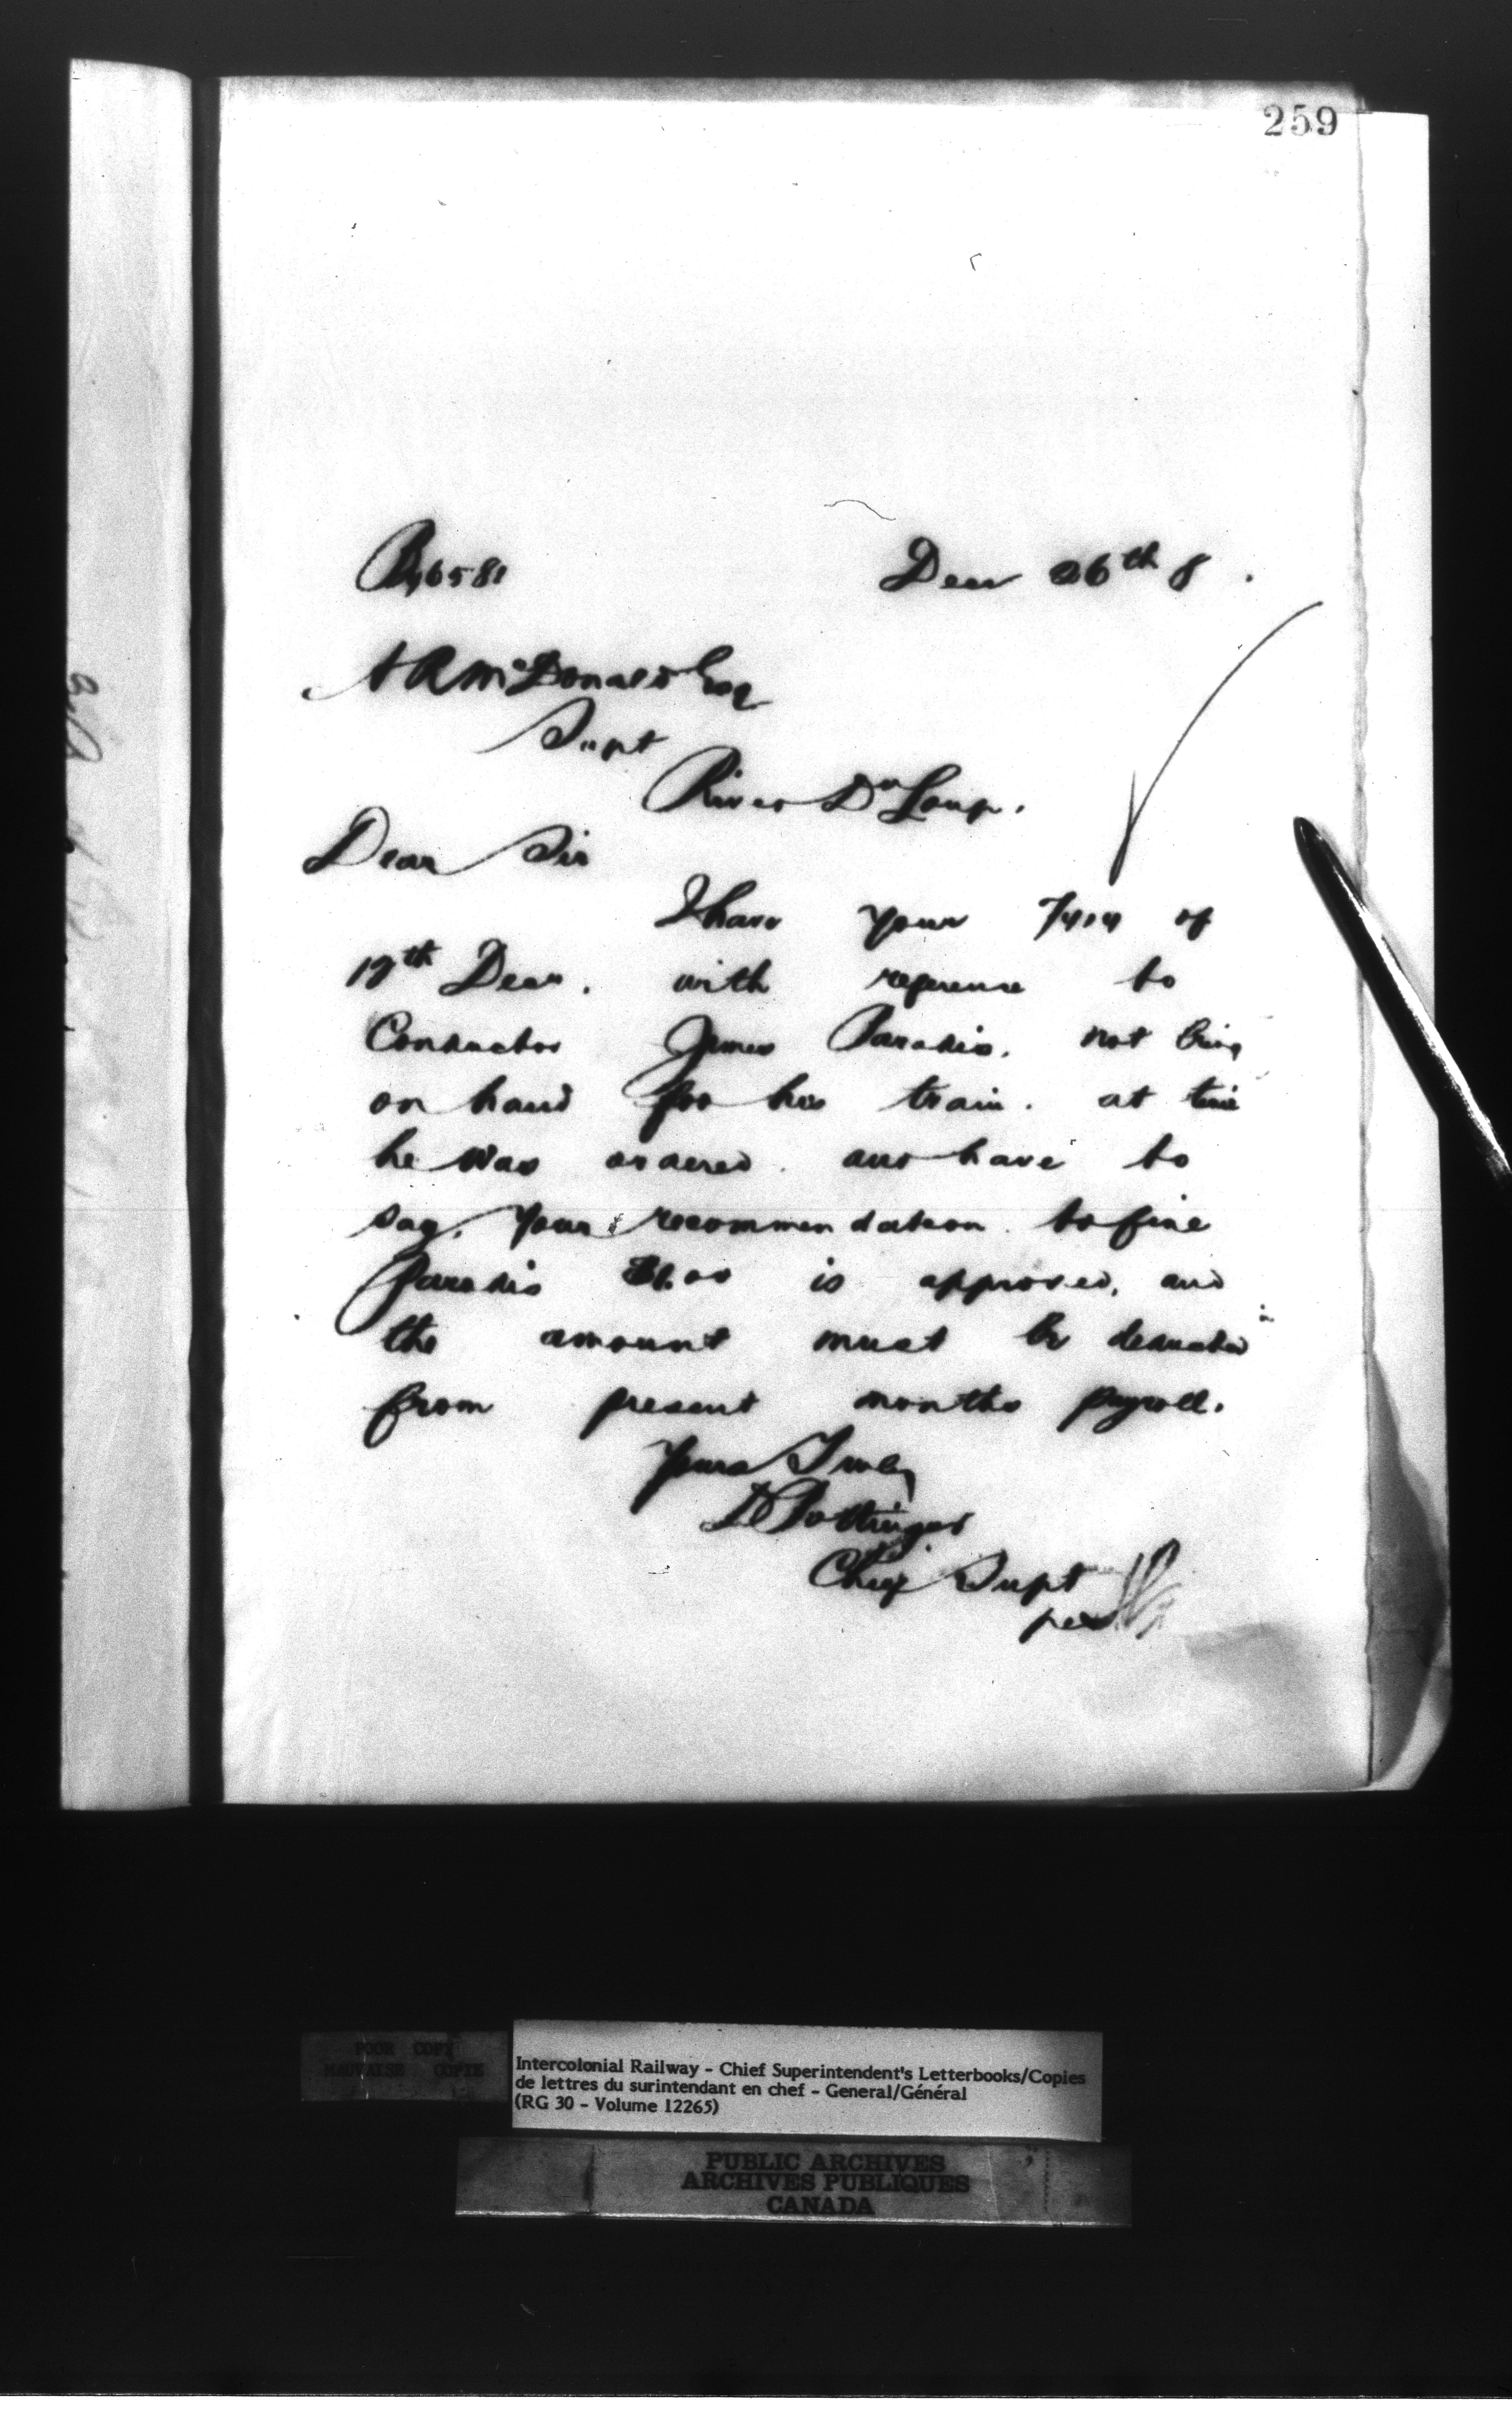 259
Decr 26th 8 .
A R McDonald Esq
Supt
River Du Loup.
Dear Sir
I have your of
Decr. with reference to
Conductor James Paradis. not being
on hand for his train. at time
he was ordered. and have to
say, your recommendation to fine
Paradis is approved, and
the amount must be deducted
from present months payroll.
Yours Truly
D Pottinger
Chief Supt
per
POOR COPY
MAUVAISE COPIE
Intercolonial Railway - Chief Superintendent's Letterbooks/Copies
de lettres du surintendant en chef - General/Général
(RG 30 - Volume 12265)
PUBLIC ARCHIVES
ARCHIVES PUBLIQUES
CANADA